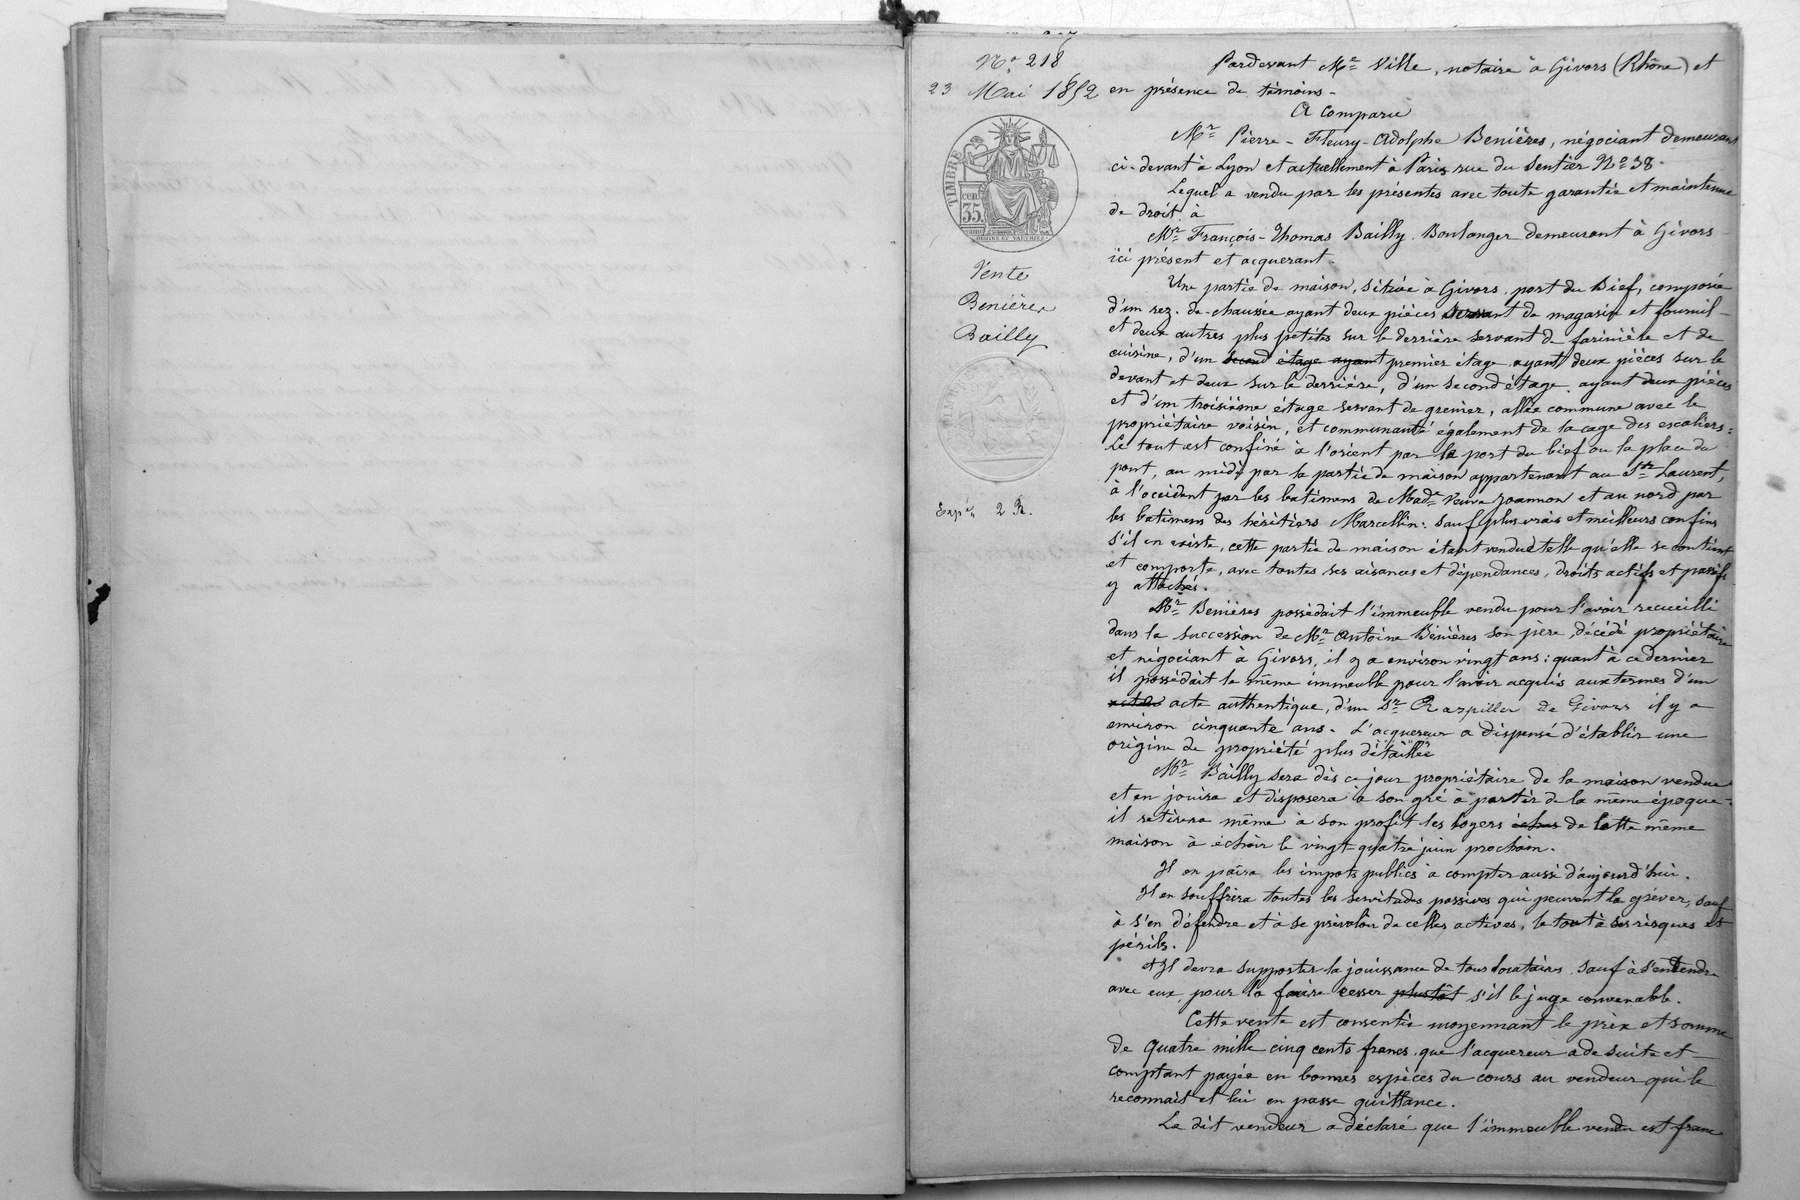 N.o 218
23 Mai 1852
TIMBRE
35
cen.
Vente
Benières
Bailly
Exp.n 2 R.
Pardevant Me Ville, notaire à Givors (Rhône) et
en présence de témoins.
A comparu
Mr Pierre-Fleury-Adolphe Benières, négociant demeurant
ci-devant à Lyon et actuellement à Paris rue du Sentier No 38.
Lequel a vendu par les présentes avec toute garantie et maintenue
de droit à
Mr François-Thomas Bailly, Boulanger demeurant à Givors
ici présent et acquerant.
Une partie de maison, située à Givors, port du Bief, composée
d'un rez-de-chaussée ayant deux pièces servant de magasin et fournil
et deux autres plus petites sur le derrière servant de farinière et de
cuisine, d'un second étage ayant premier étage ayant deux pièces sur le
devant et deux sur le derrière, d'un second étage ayant deux pièces
et d'un troisième étage servant de grenier, allée commune avec le
propriétaire voisin, et communauté également de la cage des escaliers:
Le tout est confiné à l'orient par le port du bief ou la place du
pont, au midi par la partie de maison appartenant au Sr Laurent,
à l'occident par les batimens de Made Veuve Joannon et au nord par
les batimens des héritiers Marcellin: sauf plus vrais et meilleurs confins
s'il en existe, cette partie de maison étant vendue telle qu'elle se contient
et comporte, avec toutes ses aisances et dépendances, droits actifs et passifs
y attachés.
Mr Benières possédait l'immeuble vendu pour l'avoir recueilli
dans la succession de Mr Antoine Bénières son père, décédé propriétaire
et négociant à Givors, il y a environ vingt ans: quant à ce dernier
il possédait le même immeuble pour l'avoir acquis aux termes d'un
acte authentique, d'un Sr Razpiller de Givors il y a
environ cinquante ans. L'acquereur a dispensé d'établir une
origine de propriété plus détaillée
Mr Bailly sera dès ce jour propriétaire de la maison vendue
et en jouira et disposera à son gré à partir de la même époque
il retirera même à son profit les loyers échus de cette même
maison à échoir le vingt-quatre juin prochain.
Il en paiera les impots publics à compter aussi d'aujourd'hui.
Il en souffrira toutes les servitudes passives qui peuvent la gréver, sauf
à s'en défendre et à se prévaloir de celles actives, le tout à ses risques et
périls.
Il devra supporter la jouissance de tous locataires, sauf à s'entendre
avec eux, pour la faire cesser plustôt s'il le juge convenable.
Cette vente est consentie moyennant le prix et somme
de quatre mille cinq cents francs, que l'acquereur a de suite et
comptant payée en bonnes espèces du cours au vendeur qui le
reconnait et lui en passe quittance.
Le dit vendeur a déclaré que l'immeuble vendu est franc